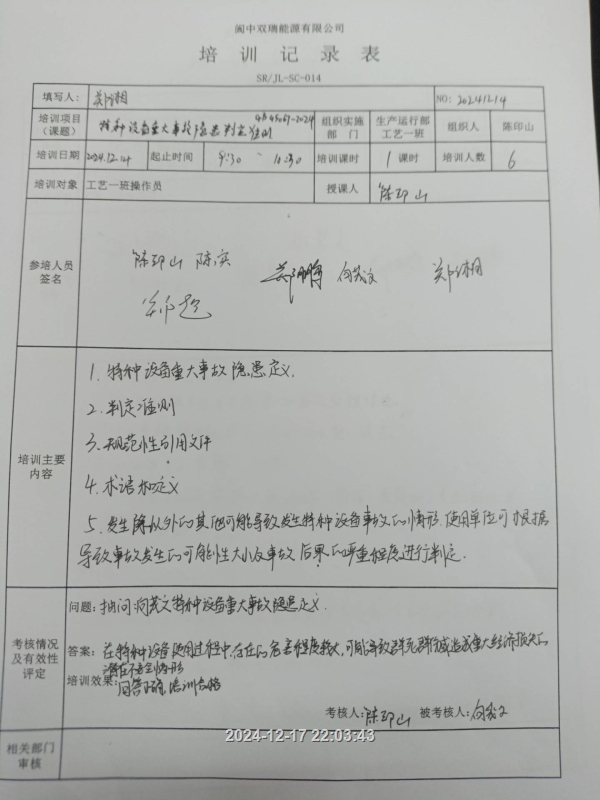 阆中双瑞能源有限公司
培训记录表
SR/JL-SC-014
填写人： NO: 20241214
培训项目（课题） 特种设备重大事故隐患判定准则 GB 45067-2024 组织实施部门 生产运行部工艺一班 组织人 陈印山
培训日期 2024.12.14 起止时间 9:30 - 10:30 培训课时 1课时 培训人数 6
培训对象 工艺一班操作员 授课人 陈印山
参培人员签名 陈印山 陈实
郑超
培训主要内容
1. 特种设备重大事故隐患定义.
2. 判定准则
3. 规范性引用文件
4. 术语和定义
5. 发生除以外的其他可能导致发生特种设备事故的情形. 使用单位可根据
导致事故发生的可能性大小及事故后果的严重程度进行判定.
考核情况及有效性评定
问题: 抽问 特种设备重大事故隐患定义.
答案: 在特种设备使用过程中,存在的危害程度较大,可能导致群死群伤或造成重大经济损失的
潜在不安全情形
培训效果: 回答正确,培训合格
考核人: 陈印山 被考核人:
2024-12-17 22:03:43
相关部门审核